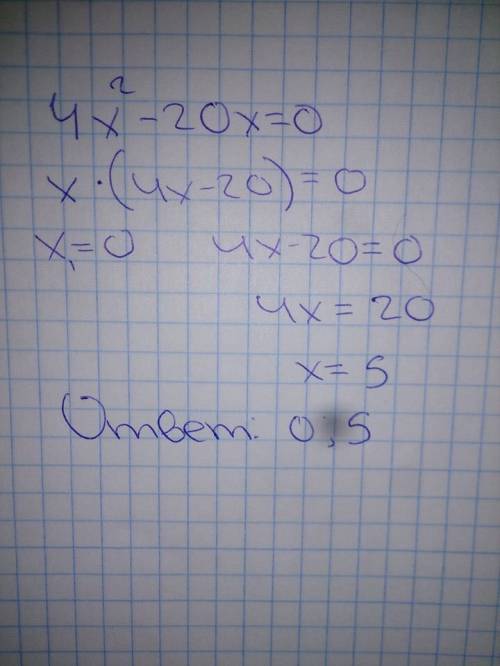 4x²-20x=0
x·(4x-20)=0
x₁=0 4x-20=0
4x=20
x=5
Ответ: 0;5